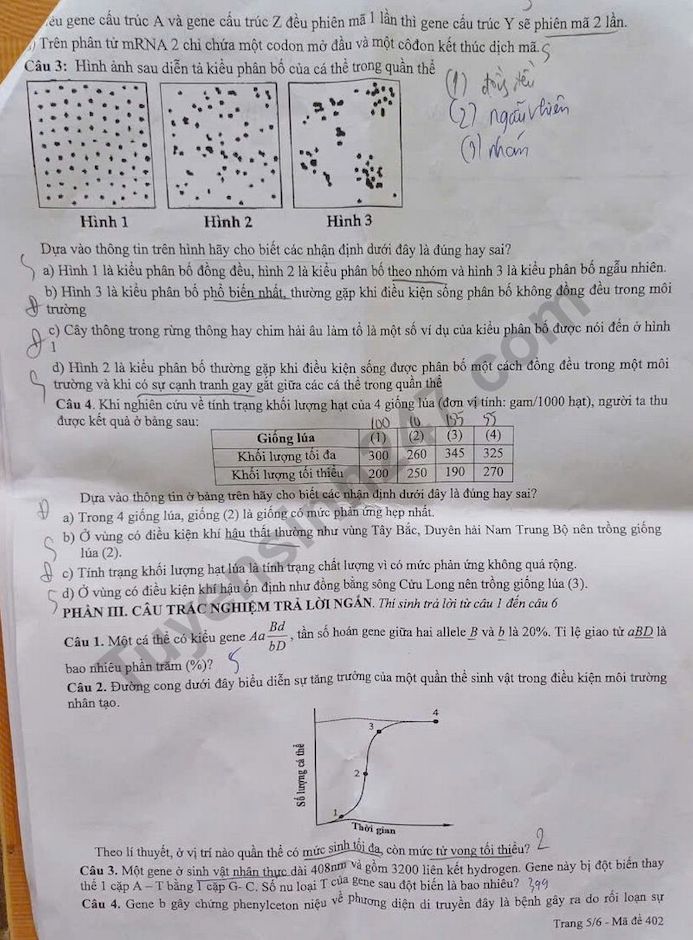 gene cấu trúc A và gene cấu trúc Z đều phiên mã 1 lần thì gene cấu trúc Y sẽ phiên mã 2 lần.
) Trên phân tử mRNA 2 chỉ chứa một codon mở đầu và một côđon kết thúc dịch mã. S
Câu 3: Hình ảnh sau diễn tả kiểu phân bố của cá thể trong quần thể
(1) đồng đều
(2) ngẫu nhiên
(3) nhóm
Hình 1 Hình 2 Hình 3
Dựa vào thông tin trên hình hãy cho biết các nhận định dưới đây là đúng hay sai?
S a) Hình 1 là kiểu phân bố đồng đều, hình 2 là kiểu phân bố theo nhóm và hình 3 là kiểu phân bố ngẫu nhiên.
b) Hình 3 là kiểu phân bố phổ biến nhất, thường gặp khi điều kiện sống phân bố không đồng đều trong môi
Đ trường
Đ c) Cây thông trong rừng thông hay chim hải âu làm tổ là một số ví dụ của kiểu phân bố được nói đến ở hình
1
S d) Hình 2 là kiểu phân bố thường gặp khi điều kiện sống được phân bố một cách đồng đều trong một môi
trường và khi có sự cạnh tranh gay gắt giữa các cá thể trong quần thể
Câu 4. Khi nghiên cứu về tính trạng khối lượng hạt của 4 giống lúa (đơn vị tính: gam/1000 hạt), người ta thu
được kết quả ở bảng sau:
100 10 155 55
Giống lúa (1) (2) (3) (4)
Khối lượng tối đa 300 260 345 325
Khối lượng tối thiểu 200 250 190 270
Dựa vào thông tin ở bảng trên hãy cho biết các nhận định dưới đây là đúng hay sai?
Đ a) Trong 4 giống lúa, giống (2) là giống có mức phản ứng hẹp nhất.
S b) Ở vùng có điều kiện khí hậu thất thường như vùng Tây Bắc, Duyên hải Nam Trung Bộ nên trồng giống
lúa (2).
Đ c) Tính trạng khối lượng hạt lúa là tính trạng chất lượng vì có mức phản ứng không quá rộng.
S d) Ở vùng có điều kiện khí hậu ổn định như đồng bằng sông Cửu Long nên trồng giống lúa (3).
PHẦN III. CÂU TRẮC NGHIỆM TRẢ LỜI NGẮN. Thí sinh trả lời từ câu 1 đến câu 6
Câu 1. Một cá thể có kiểu gene Aa Bd/bD, tần số hoán gene giữa hai allele B và b là 20%. Tỉ lệ giao tử aBD là
bao nhiêu phần trăm (%)? 5
Câu 2. Đường cong dưới đây biểu diễn sự tăng trưởng của một quần thể sinh vật trong điều kiện môi trường
nhân tạo.
Số lượng cá thể
4
3
2
1
Thời gian
Theo lí thuyết, ở vị trí nào quần thể có mức sinh tối đa, còn mức tử vong tối thiểu? 2
Câu 3. Một gene ở sinh vật nhân thực dài 408nm và gồm 3200 liên kết hydrogen. Gene này bị đột biến thay
thế 1 cặp A – T bằng 1 cặp G- C. Số nu loại T của gene sau đột biến là bao nhiêu? 399
Câu 4. Gene b gây chứng phenylceton niệu về phương diện di truyền đây là bệnh gây ra do rối loạn sự
Trang 5/6 - Mã đề 402
Tuyensinh247.com